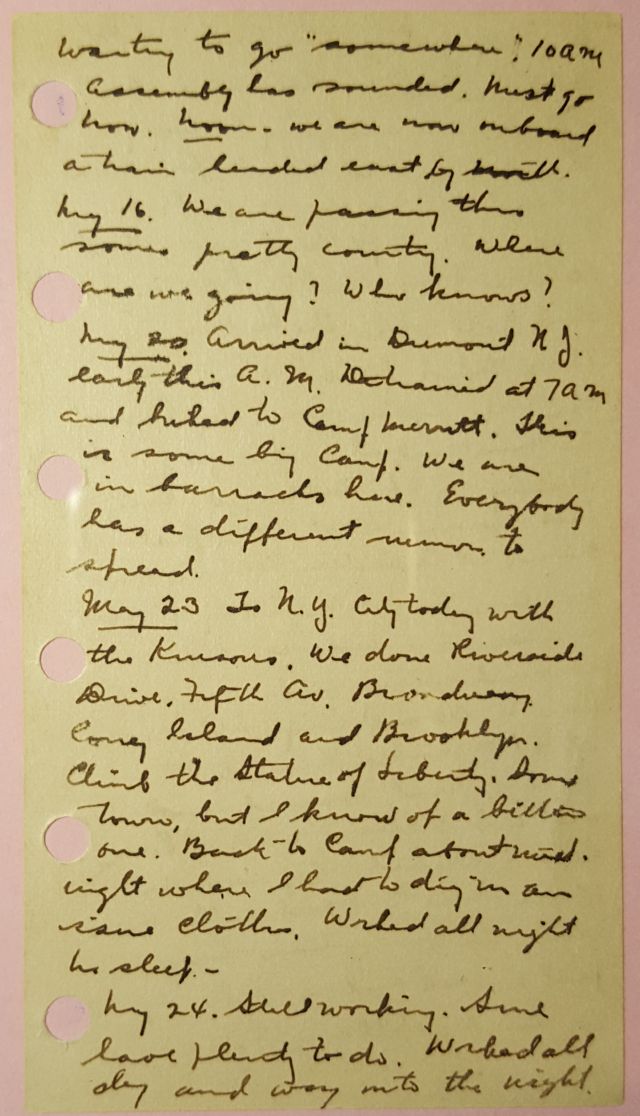 Waiting to go "somewhere". 10 am
Assembly has sounded. Must go
now. Noon - we are now onboard
a train headed east by north.
May 16. We are passing thru
some pretty country. Where
are we going? Who knows?
May 20. Arrived in Dumont N J.
early this A. M. Detrained at 7 a m
and hiked to Camp Merritt. This
is some big Camp. We are
in barracks here. Everybody
has a different rumor to
spread.
May 23 To N. Y. City today with
the. We done Riverside
Drive, Fifth Av, Broadway
Coney Island and Brooklyn.
Climb the Statue of Liberty. Some
town, but I know of a better
one. Back to Camp about mid-
night where I had to dig in an
issue clothes. Worked all night
no sleep. -
May 24. Still working. Sure
have plenty to do. Worked all
day and way into the night.